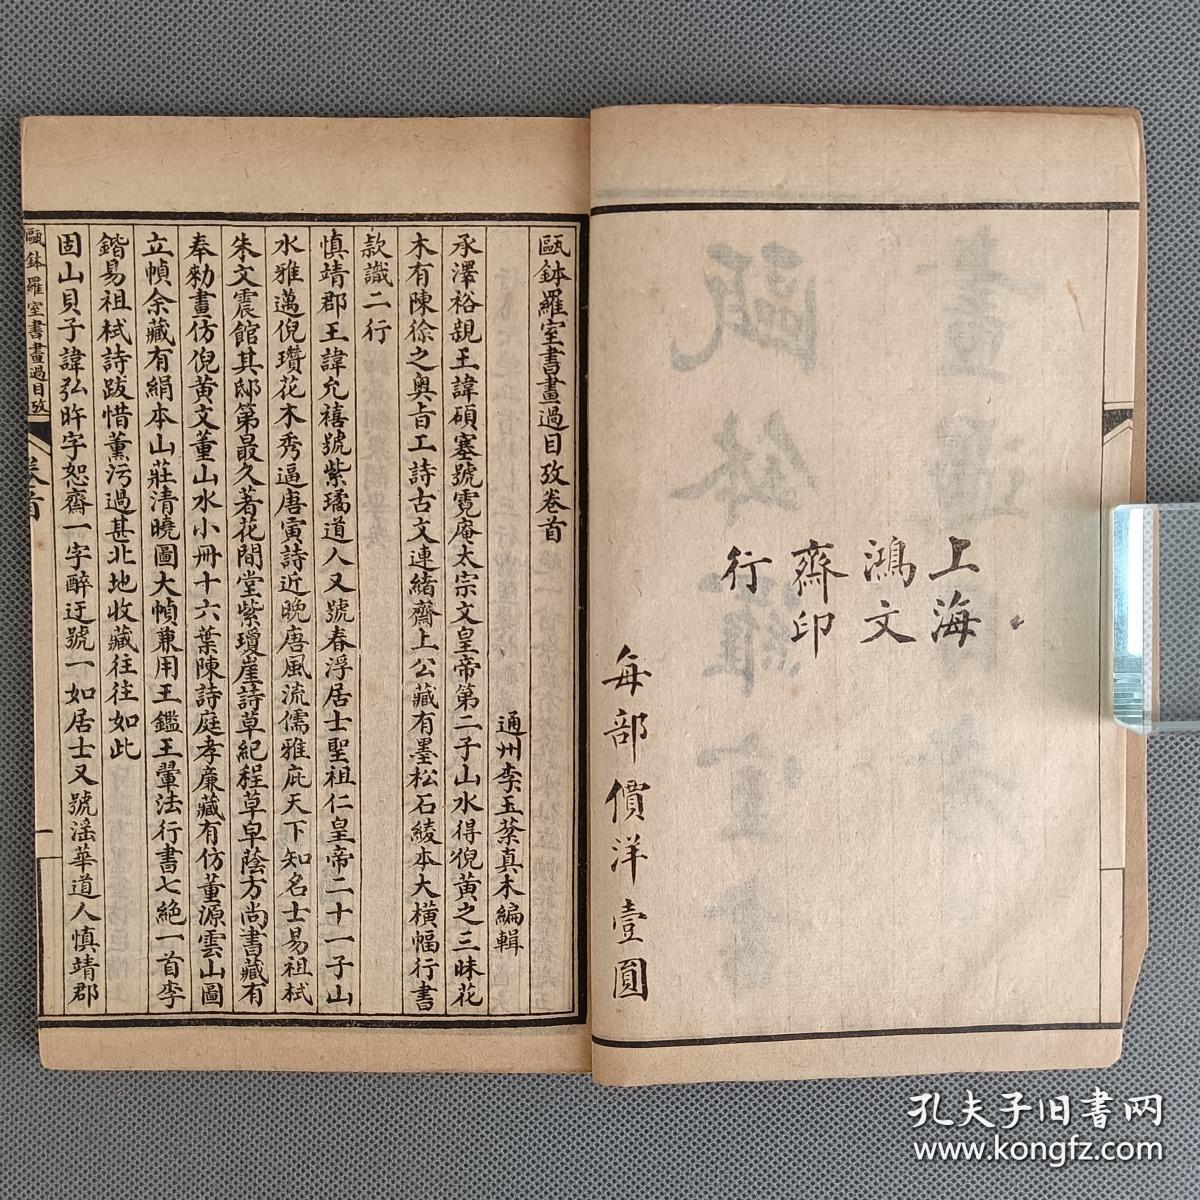 上海
鴻文
齋印
行
每部價洋壹圓
甌鉢羅室書畫過目攷卷首
通州李玉棻真木編輯
承澤裕親王諱碩塞號霓庵太宗文皇帝第二子山水得倪黃之三昧花
木有陳徐之奧旨工詩古文連緒齋上公藏有墨松石綾本大橫幅行書
款識二行
慎靖郡王諱允禧號紫璚道人又號春浮居士聖祖仁皇帝二十一子山
水雅邁倪瓚花木秀逼唐寅詩近晚唐風流儒雅庇天下知名士易祖栻
朱文震館其邸第最久著花間堂紫瓊崖詩草紀程草皁蔭方尚書藏有
奉勅畫仿倪黃文董山水小冊十六葉陳詩庭孝廉藏有仿董源雲山圖
立幀余藏有絹本山莊清曉圖大幀兼用王鑑王翬法行書七絕一首李
鍇易祖栻詩跋惜薰污過甚北地收藏往往如此
固山貝子諱弘旿字恕齋一字醉迂號一如居士又號瑶華道人慎靖郡
甌鉢羅室書畫過目攷
卷首
一
孔夫子旧书网
www.kongfz.com